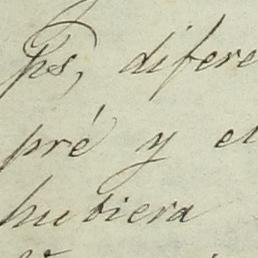 ps, difere
pré y el
hubiera